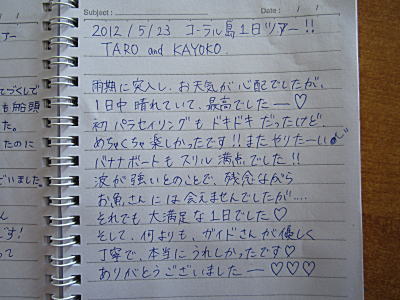 Subject :
Date :
2012/5/23 コーラル島1日ツアー!!
TARO and KAYOKO.
雨期に突入し、お天気が心配でしたが、
1日中晴れていて、最高でしたー♡
初パラセイリングもドキドキだったけど
めちゃくちゃ楽しかったです!!またやりたーい
バナナボートもスリル満点でした!!
波が強いとのことで、残念ながら
お魚さんには会えませんでしたが....
それでも大満足な1日でした♡
そして、何よりも、ガイドさんが優しく
丁寧で、本当にうれしかったです♡
ありがとうございましたー♡♡♡
アー
てづくしで
も船頭
た。
たのに
いました。
です!
って